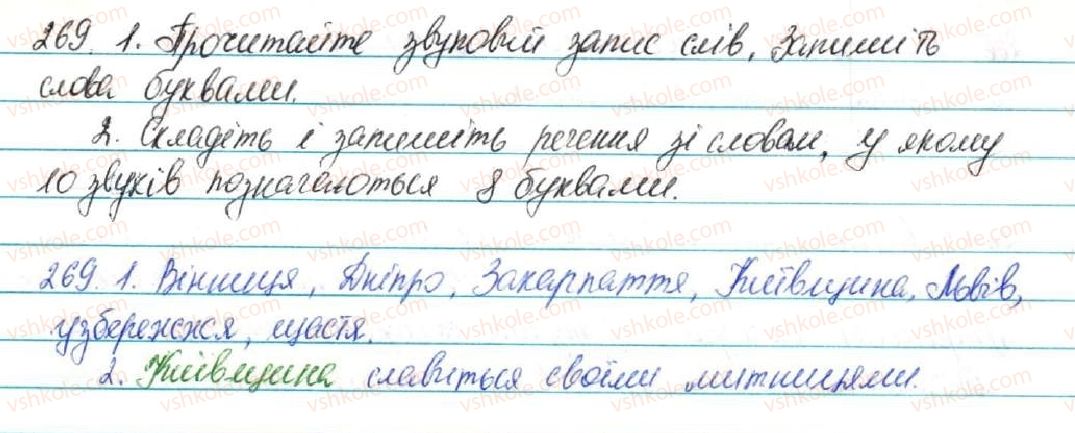 269. 1. Прочитайте звуковий запис слів. Запишіть
слова буквами.
2. Складіть і запишіть речення зі словом, у якому
10 звуків позначаються 8 буквами.
269. 1. Вінниця, Дніпро, Закарпаття, Київщина, Львів,
узбережжя, щастя.
2. Київщина славиться своїми митницями.